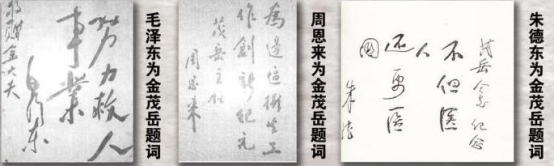 努力救人
事業
敬赠金大夫
毛泽东
毛泽东为金茂岳题词
為邊區衛生工
作創新紀元
茂岳主任
周恩来
周恩来为金茂岳题词
茂岳同志 纪念
不但医
人
还要医
國
朱德
朱德东为金茂岳题词